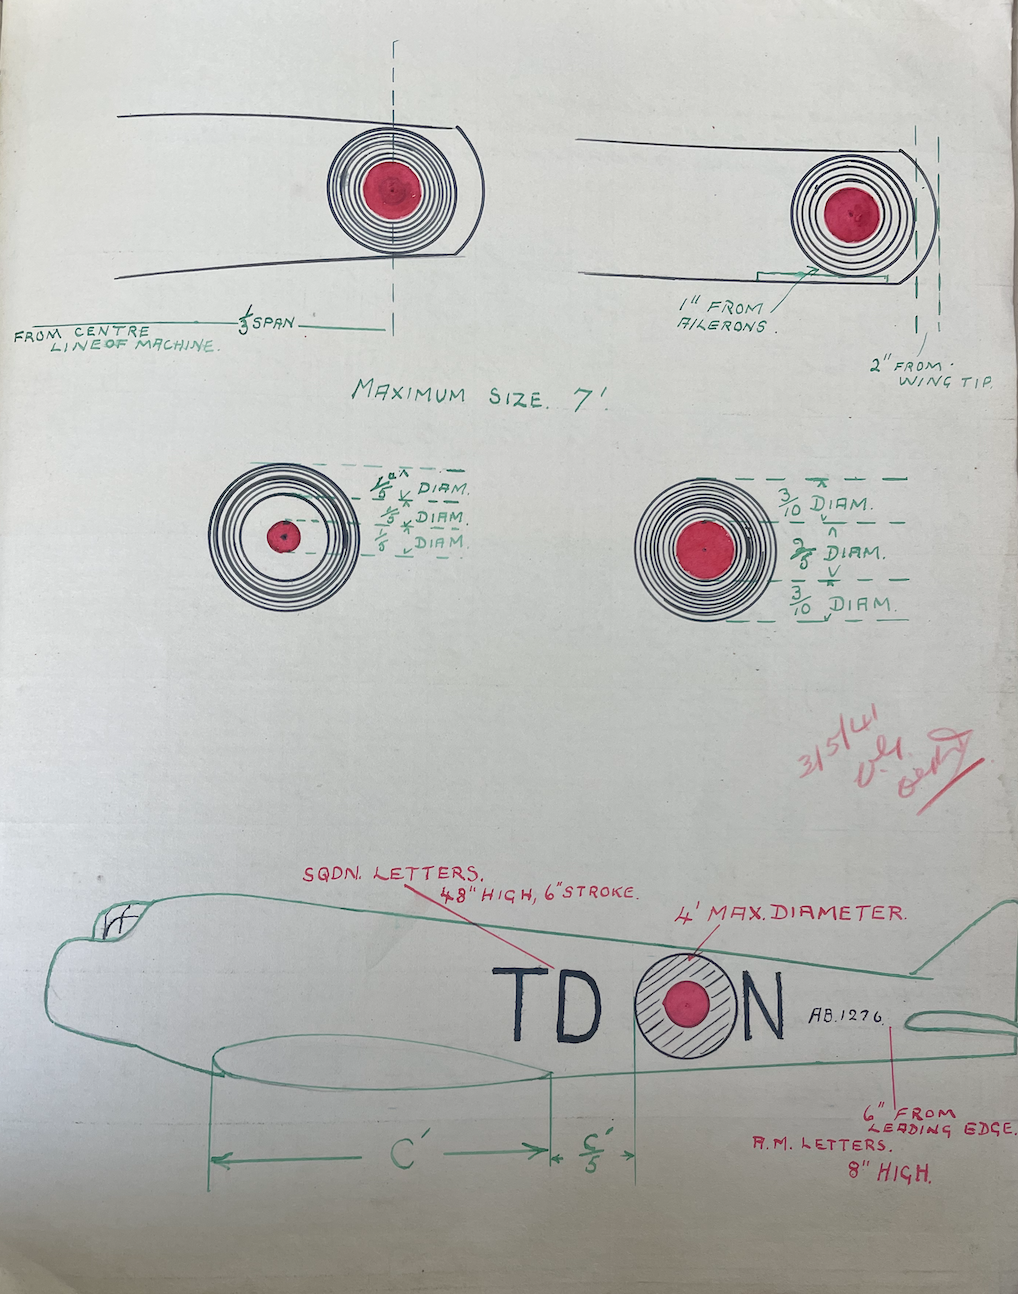 1/3 SPAN
FROM CENTRE
LINE OF MACHINE.
1" FROM
AILERONS.
2" FROM
WING TIP.
MAXIMUM SIZE. 7'
1/5 DIAM.
1/5 DIAM.
1/5 DIAM.
3/10 DIAM.
2/5 DIAM.
3/10 DIAM.
3/5/41
SQDN. LETTERS.
48" HIGH, 6" STROKE.
4' MAX. DIAMETER.
TD N
AB.1276.
6" FROM
LEADING EDGE.
A.M. LETTERS.
8" HIGH.
C'
C'/5